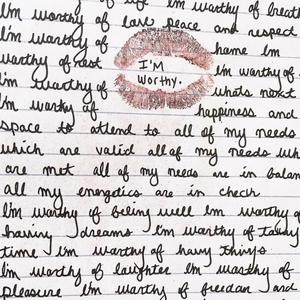 of life I'm worthy of breath
I'm worthy of love peace and respect
I'm worthy of home Im
worthy of rest I'M Im worthy of
I'm worthy of WORTHY. whats next
I'm worthy of happiness and
space to attend to all of my needs
which are valid all of my needs wh
are met all of my needs are in balan
all my energetics are in check
I'm worthy of being well Im worthy of
having dreams Im worthy of taking
time Im worthy of having things
Im worthy of laughter Im worthy of
pleasure I'm worthy of freedom and